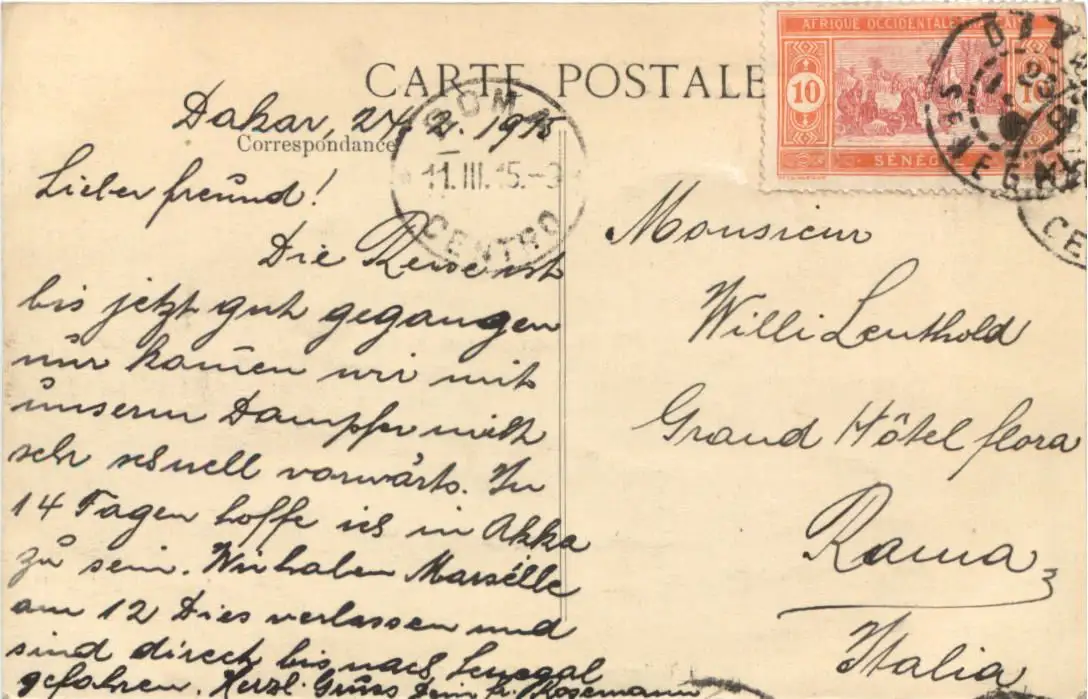 CARTE POSTALE
Correspondance
AFRIQUE OCCIDENTALE FRANÇAISE
10 10
SÉNÉGAL
ROMA
11.III.15.-9
CENTRO
SENEGAL
CE
Dakar, 24. 2. 1915
Lieber freund!
Die Reise ist
bis jetzt gut gegangen
nur kom̄en wir mit
unserm Dampfer nicht
sehr schnell vorwärts. In
14 Tagen hoffe ich in Akka
zu sein. Wir haben Marseille
am 12 Dies verlassen und
sind direct bis nach Senegal
gefahren. Herzl. Gruss Dein Fr. Rosemann
Monsieur
Willi Leuthold
Grand Hôtel flora
Roma
Italia